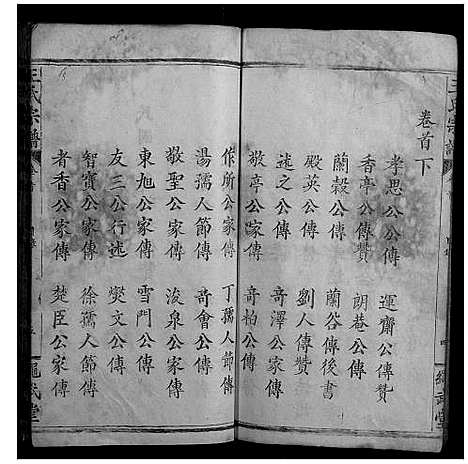 卷首下
孝思公公傳
運齋公傳贊
香亭公傳贊
朗巷公傳
蘭穀公傳
蘭谷傳後書
殿英公傳
劉人傳贊
述之公傳
奇澤公家傳
敬亭公家傳
奇柏公傳
作所公家傳
丁孺人節傳
湯孺人節傳
奇會公傳
敬聖公家傳
浚泉公家傳
東旭公家傳
雪門公家傳
友三公行述
爕文公傳
智寶公家傳
徐孺人節傳
者香公家傳
楚臣公家傳
王氏宗譜